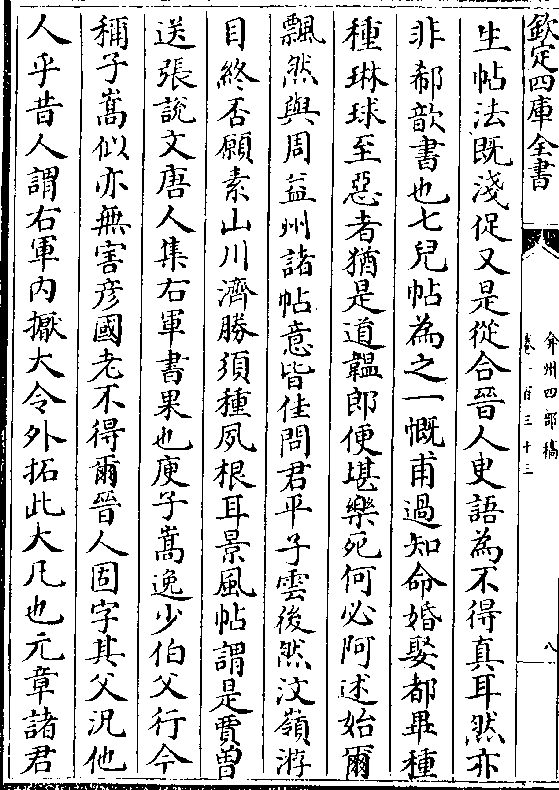 欽定四庫全書
弇州四部稿
卷一百三十三
八
生帖法既淺促又是從合晉人史語為不得真耳然亦
非郗歆書也七兒帖為之一慨甫過知命婚娶都畢種
種琳球至惡者猶是道韞郎便堪樂死何必阿述始爾
飄然與周益州諸帖意皆佳問君平子雲後然汶嶺游
目終否願素山川濟勝須種夙根耳景風帖謂是賈曾
送張說文唐人集右軍書果也庾子嵩逸少伯父行今
稱子嵩似亦無害彥國老不得爾晉人固字其父況他
人乎昔人謂右軍內擫大令外拓此大凡也元章諸君